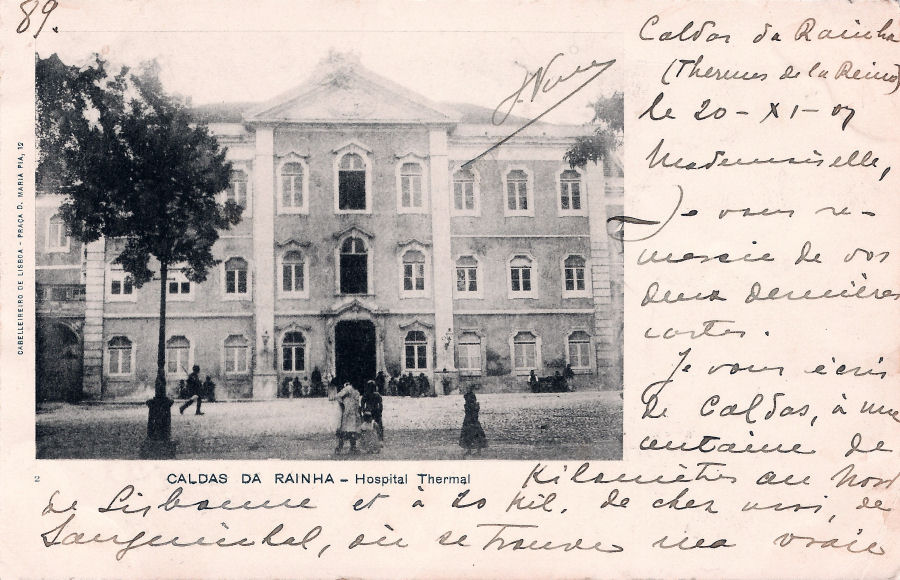 89.
Caldas da Rainha
(Thermes de la Reine)
le 20-XI-07
Mademoiselle,
Je vous re-
mercie de vos
deux dernières
cartes.
Je vous écris
de Caldas, à une
centaine de
Kilomètres au Nord
de Lisbonne et à 20 Kil. de chez moi, de
Sanguinhal, où se trouve ma vraie
J.
CABELLEIREIRO DE LISBOA - PRAÇA D. MARIA PIA, 12
2
CALDAS DA RAINHA - Hospital Thermal